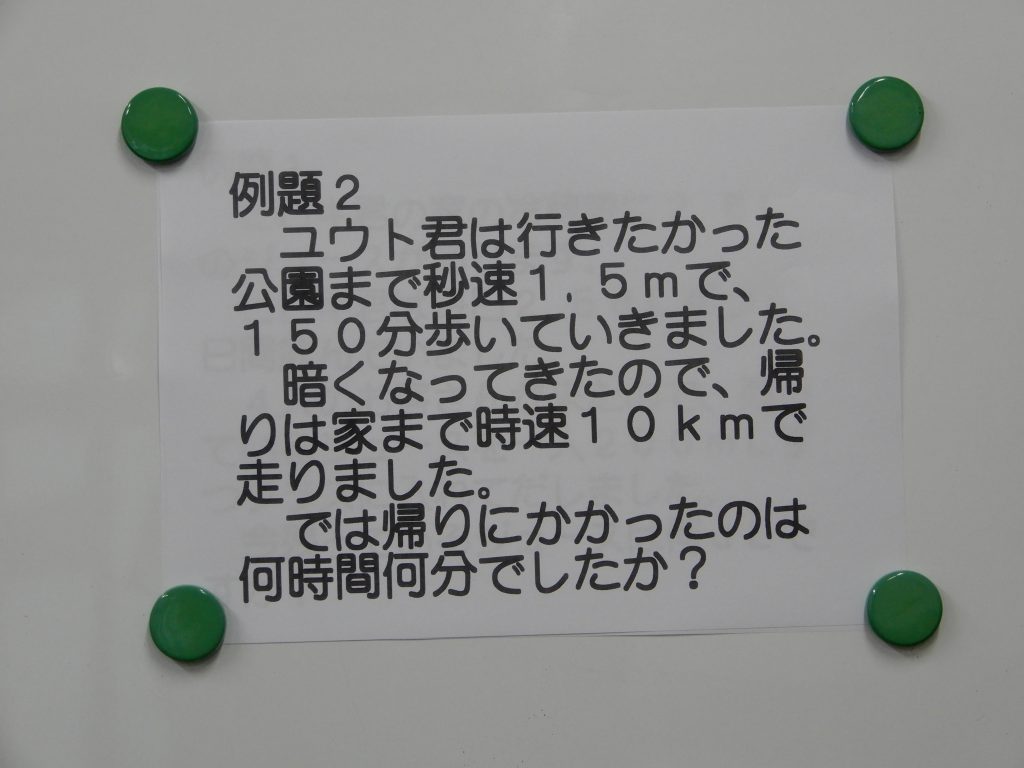 例題２
ユウト君は行きたかった
公園まで秒速１．５ｍで、
１５０分歩いていきました。
暗くなってきたので、帰
りは家まで時速１０ｋｍで
走りました。
では帰りにかかったのは
何時間何分でしたか？